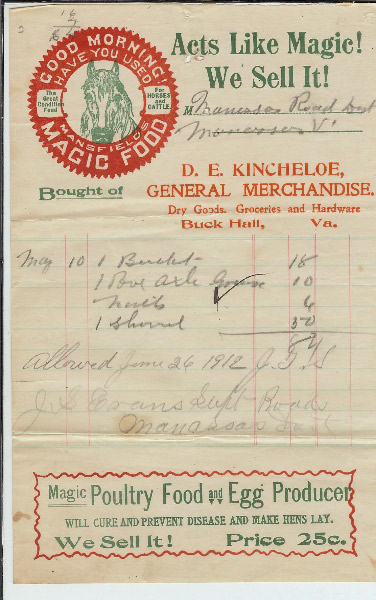 GOOD MORNING!
HAVE YOU USED
The Great Condition Food
For HORSES and CATTLE.
MANSFIELD'S
MAGIC FOOD
Acts Like Magic!
We Sell It!
M Manassas Road Dist
Manassas Va
Bought of
D. E. KINCHELOE,
GENERAL MERCHANDISE.
Dry Goods, Groceries and Hardware
Buck Hall, Va.
May 10 1 Bucket 18
1 Box Axle Grease 10
Nails 6
1 Shovel 50
84
Allowed June 26 1912 J.
J. Evans Supt Roads
Manassas Dist
Magic Poultry Food and Egg Producer
WILL CURE AND PREVENT DISEASE AND MAKE HENS LAY.
We Sell It! Price 25c.